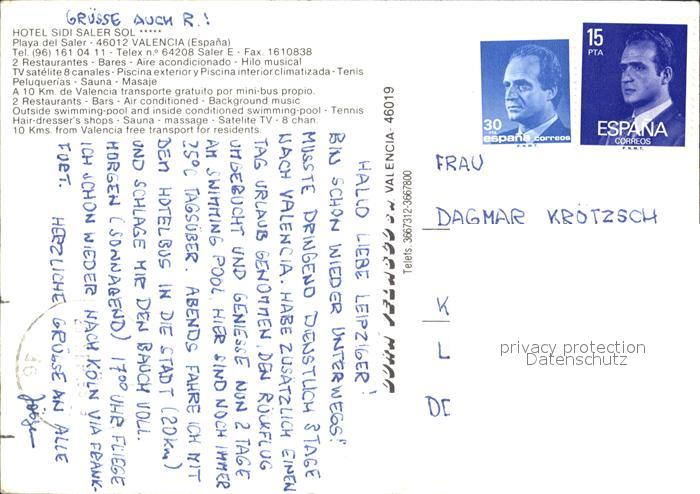 GRÜSSE AUCH R.!
HOTEL SIDI SALER SOL *****
Playa del Saler - 46012 VALENCIA (España)
Tel. (96) 161 04 11 - Telex n.º 64208 Saler E - Fax. 1610838
2 Restaurantes - Bares - Aire acondicionado - Hilo musical
TV satélite 8 canales - Piscina exterior y Piscina interior climatizada - Tenis
Peluquerías - Sauna - Masaje
A 10 Km. de Valencia transporte gratuito por mini-bus propio.
2 Restaurants - Bars - Air conditioned - Background music
Outside swimming-pool and inside conditioned swimming-pool - Tennis
Hair-dresser's shops - Sauna - massage - Satelite TV - 8 chan.
10 Kms. from Valencia free transport for residents.
HALLO LIEBE LEIPZIGER!
BIN SCHON WIEDER UNTERWEGS!
MUSSTE DRINGEND DIENSTLICH 3 TAGE
NACH VALENCIA. HABE ZUSÄTZLICH EINEN
TAG URLAUB GENOMMEN DEN RÜCKFLUG
UMGEBUCHT UND GENIESSE NUN 2 TAGE
AM SWIMMING POOL. HIER SIND NOCH IMMER
25°C TAGSÜBER. ABENDS FAHRE ICH MIT
DEM HOTELBUS IN DIE STADT (20 Km)
UND SCHLAGE MIR DEN BAUCH VOLL.
MORGEN (SONNABEND) 17 00 UHR FLIEGE
ICH SCHON WIEDER NACH KÖLN VIA FRANK-
FURT. HERZLICHE GRÜSSE AN ALLE
VALENCIA - 46019
Telefs. 3667312-3667800
30
PTA
españa correos
F.N.M.T.
15
PTA
ESPAÑA
CORREOS
F.N.M.T.
FRAU
DAGMAR KRÖTZSCH
K
L
DE
privacy protection
Datenschutz
46